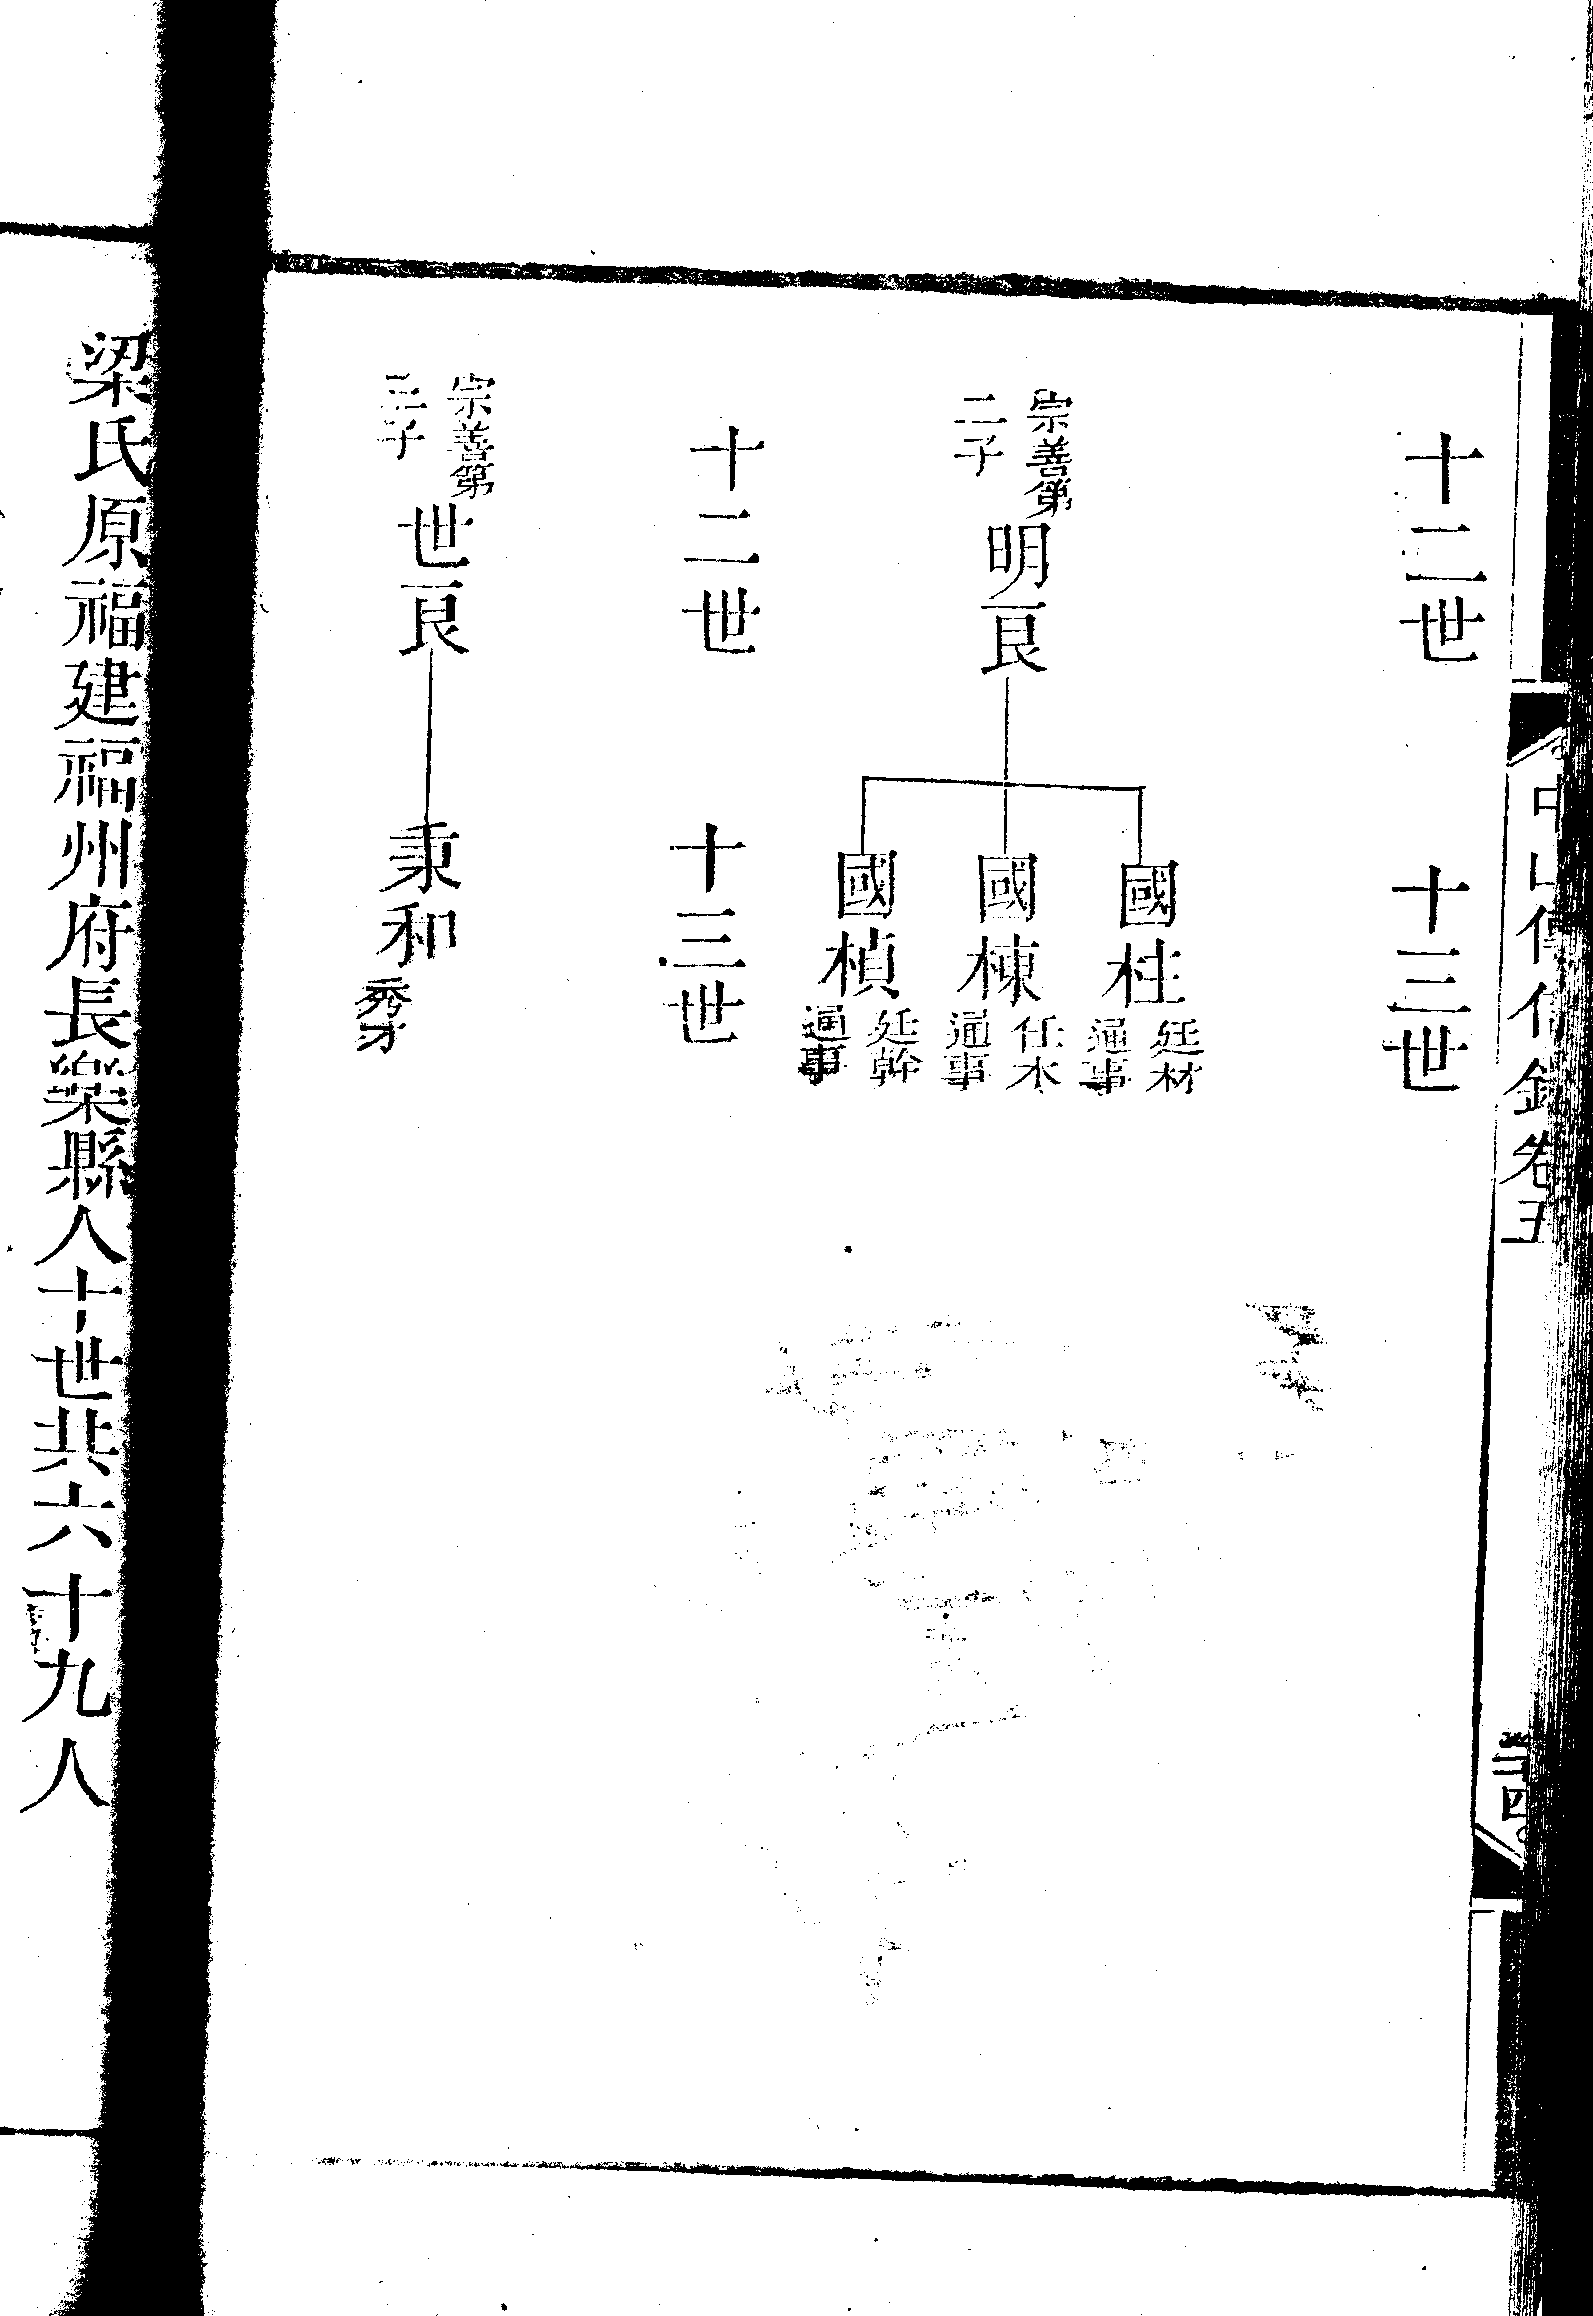 中山傳信錄卷五
十二世
十三世
宗善第
二子
明良
國柱
廷材
通事
國棟
任木
通事
國楨
廷幹
通事
十二世
十三世
宗善第
三子
世良
秉和
秀才
梁氏原福建福州府長樂縣人十世共六十九人